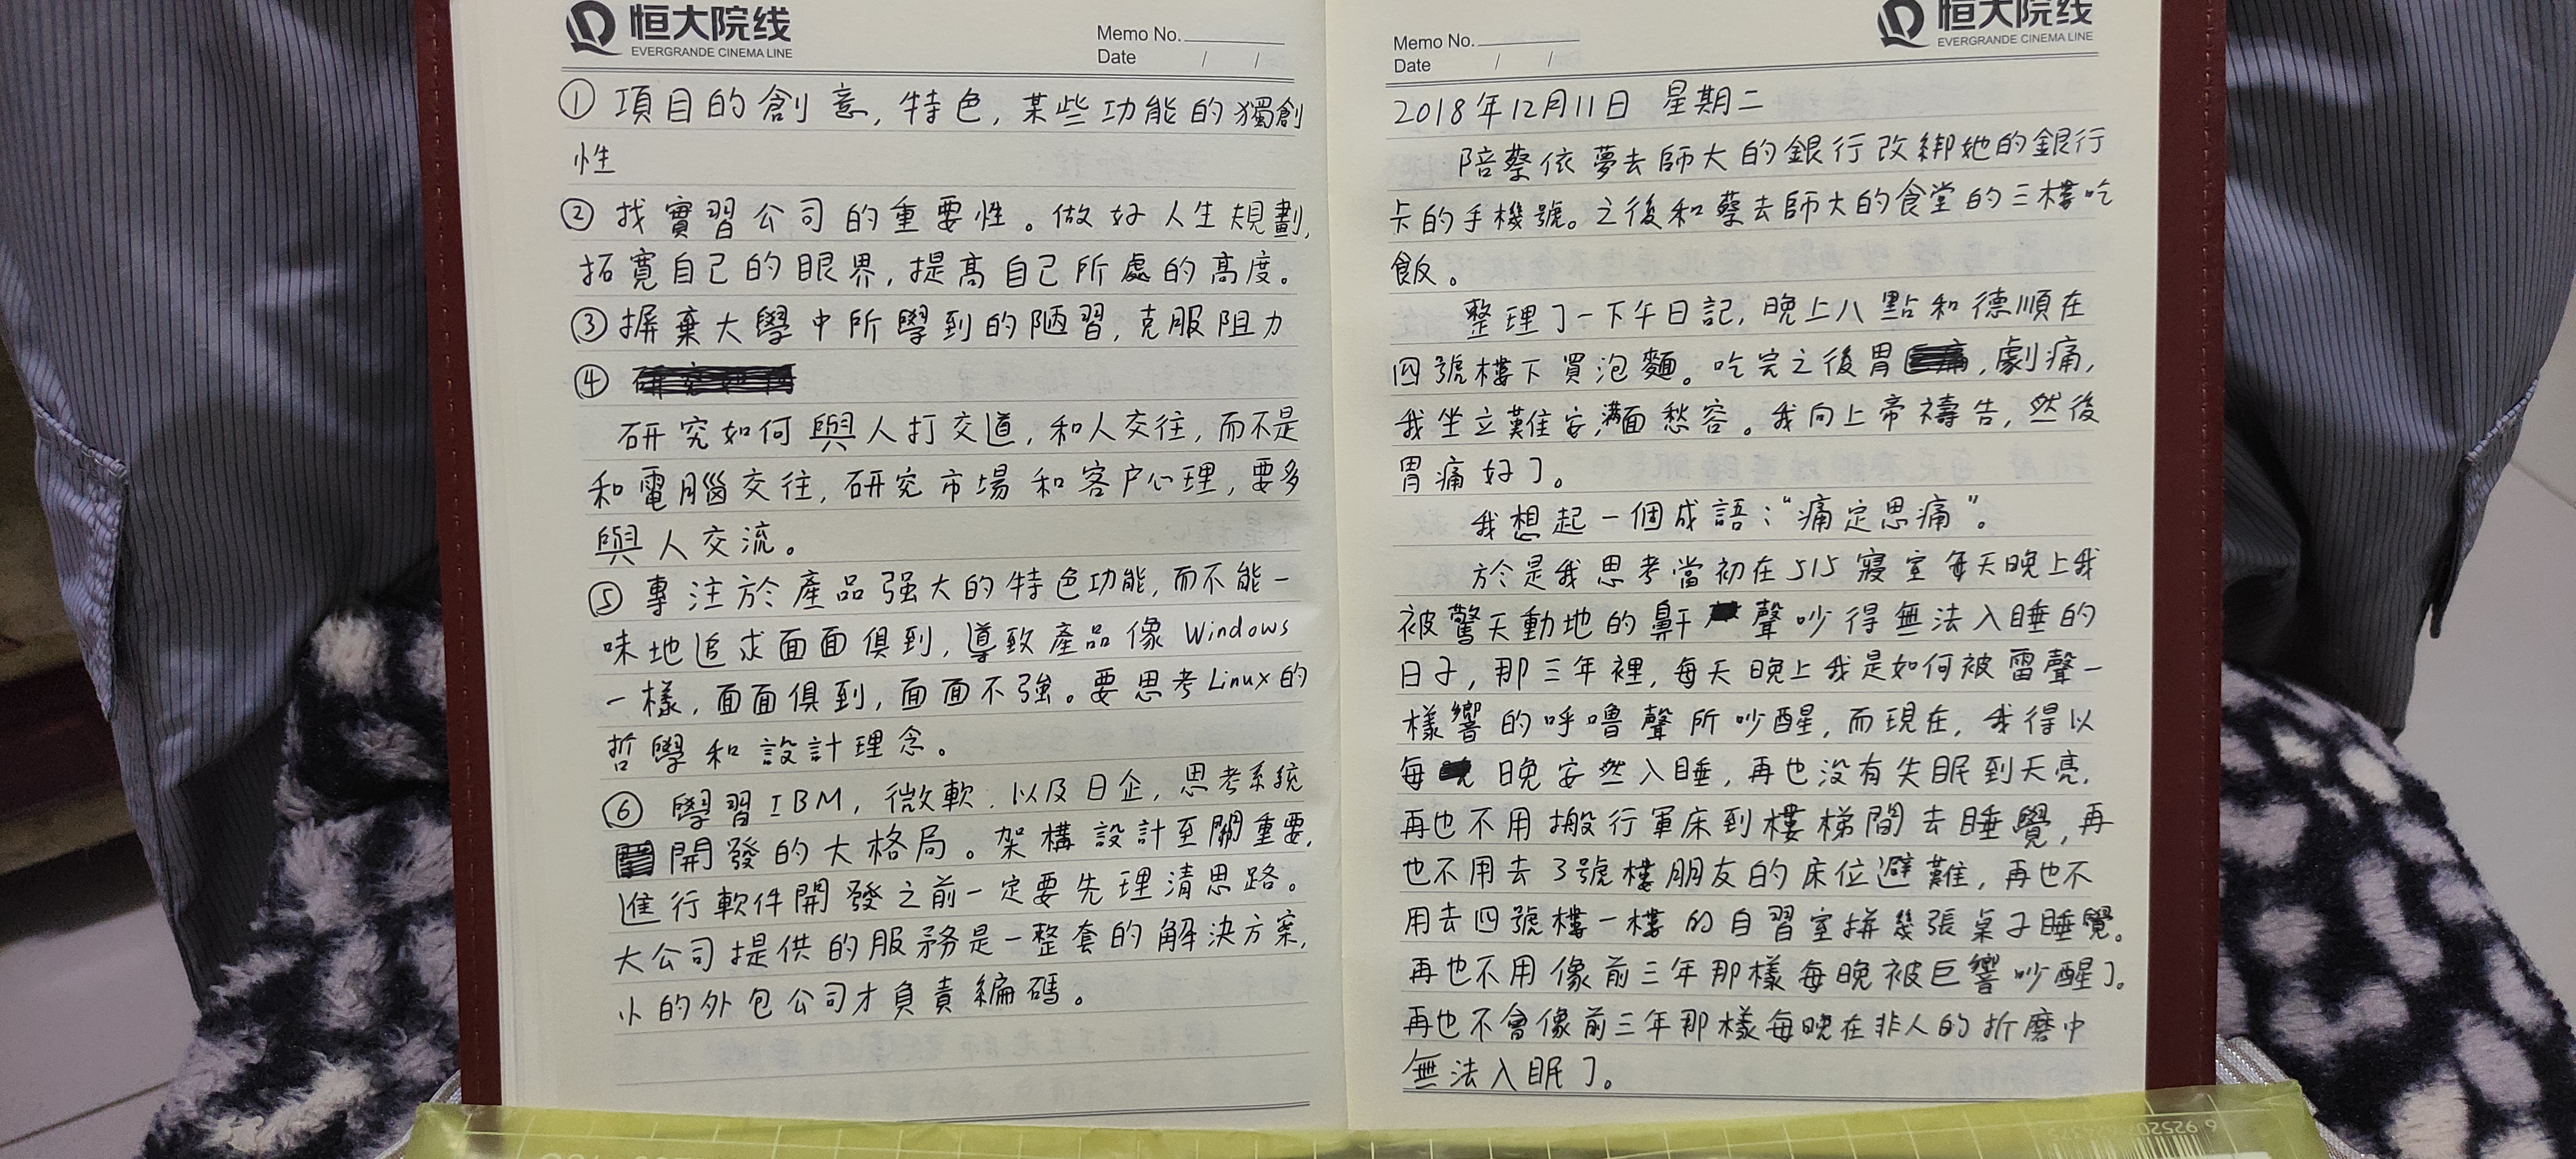 恒大院线
EVERGRANDE CINEMA LINE
Memo No.
Date / /
① 項目的創意,特色,某些功能的獨創
性
② 找實習公司的重要性。做好人生規劃,
拓寬自己的眼界,提高自己所處的高度。
③ 摒棄大學中所學到的陋習,克服阻力
④
研究如何與人打交道,和人交往,而不是
和電腦交往,研究市場和客户心理,要多
與人交流。
⑤ 專注於產品强大的特色功能,而不能一
味地追求面面俱到,導致產品像 Windows
一樣,面面俱到,面面不強。要思考Linux的
哲學和設計理念。
⑥ 學習IBM,微軟,以及日企,思考系統
開發的大格局。架構設計至關重要,
進行軟件開發之前一定要先理清思路。
大公司提供的服務是一整套的解決方案,
小的外包公司才負責編碼。
恒大院线
EVERGRANDE CINEMA LINE
Memo No.
Date / /
2018年12月11日 星期二
陪蔡依夢去師大的銀行改綁她的銀行
卡的手機號。之後和蔡去師大的食堂的三樓吃
飯。
整理了一下午日記,晚上八點和德順在
四號樓下買泡麵。吃完之後胃,劇痛,
我坐立難安,滿面愁容。我向上帝禱告,然後
胃痛好了。
我想起一個成語:“痛定思痛”。
於是我思考當初在515寢室每天晚上我
被驚天動地的鼾聲吵得無法入睡的
日子,那三年裡,每天晚上我是如何被雷聲一
樣響的呼嚕聲所吵醒,而現在,我得以
每晚安然入睡,再也没有失眠到天亮,
再也不用搬行軍床到樓梯間去睡覺,再
也不用去3號樓朋友的床位避難,再也不
用去四號樓一樓的自習室拼幾張桌子睡覺。
再也不用像前三年那樣每晚被巨響吵醒了。
再也不會像前三年那樣每晚在非人的折磨中
無法入眠了。